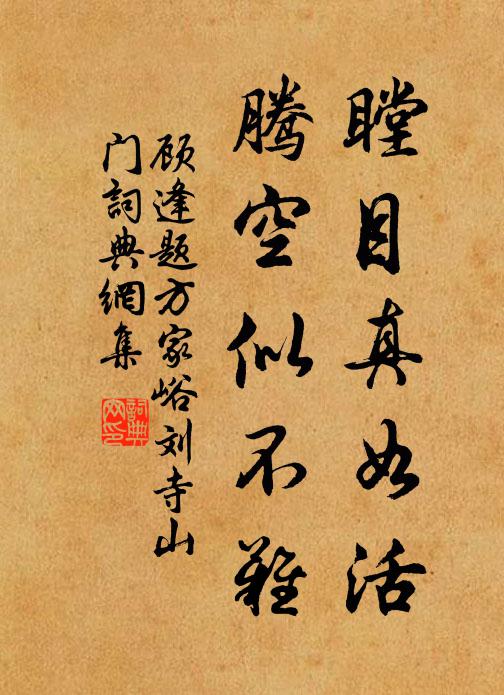 瞠目真如活
腾空似不难
顾逢题方家峪刘寺山
门词典網集
詞典网印